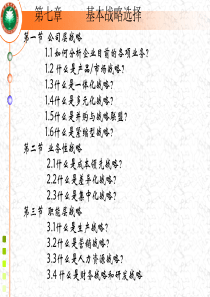 第七章 基本战略选择
第一节 公司层战略
1.1如何分析企业目前的各项业务?
1.2什么是产品/市场战略?
1.3什么是一体化战略?
1.4什么是多元化战略?
1.5什么是并购与战略联盟?
1.6什么是紧缩型战略?
第二节 业务性战略
2.1什么是成本领先战略?
2.2什么是差异化战略?
2.3什么是集中化战略?
第三节 职能层战略
3.1什么是生产战略?
3.2什么是营销战略?
3.3什么是人力资源战略?
3.4 什么是财务战略和研发战略